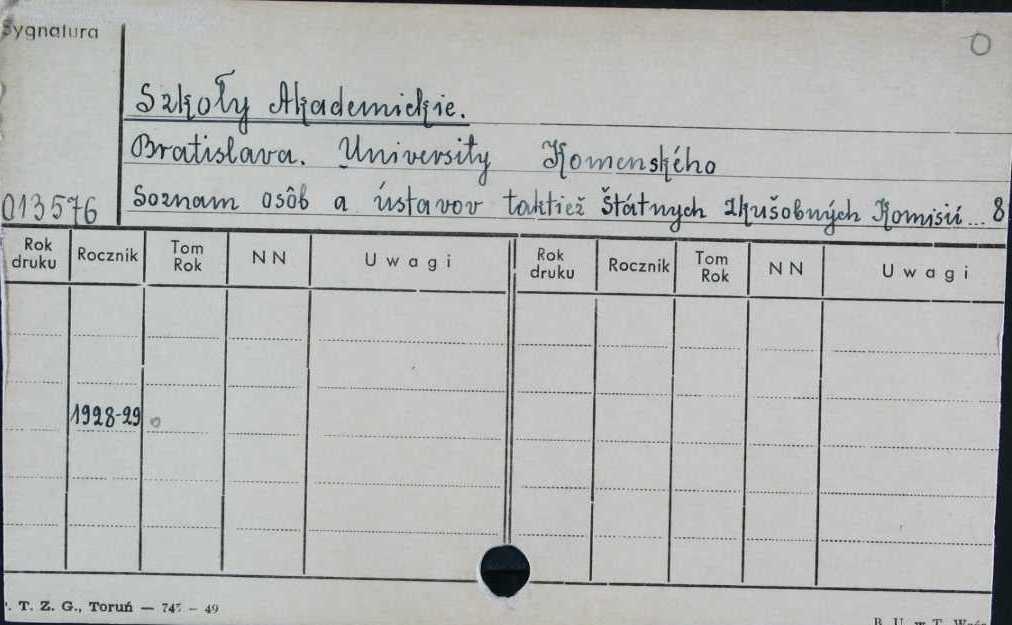 Sygnatura
O
Szkoły Akademickie.
Bratislava. University Komenského
013576
Soznam osôb a ústavov taktiež štátnych zkušobných Komisií... 8
Rok druku Rocznik Tom Rok NN Uwagi Rok druku Rocznik Tom Rok NN Uwagi
1928-29 o
T. Z. G., Toruń — 49
B. U. w T.